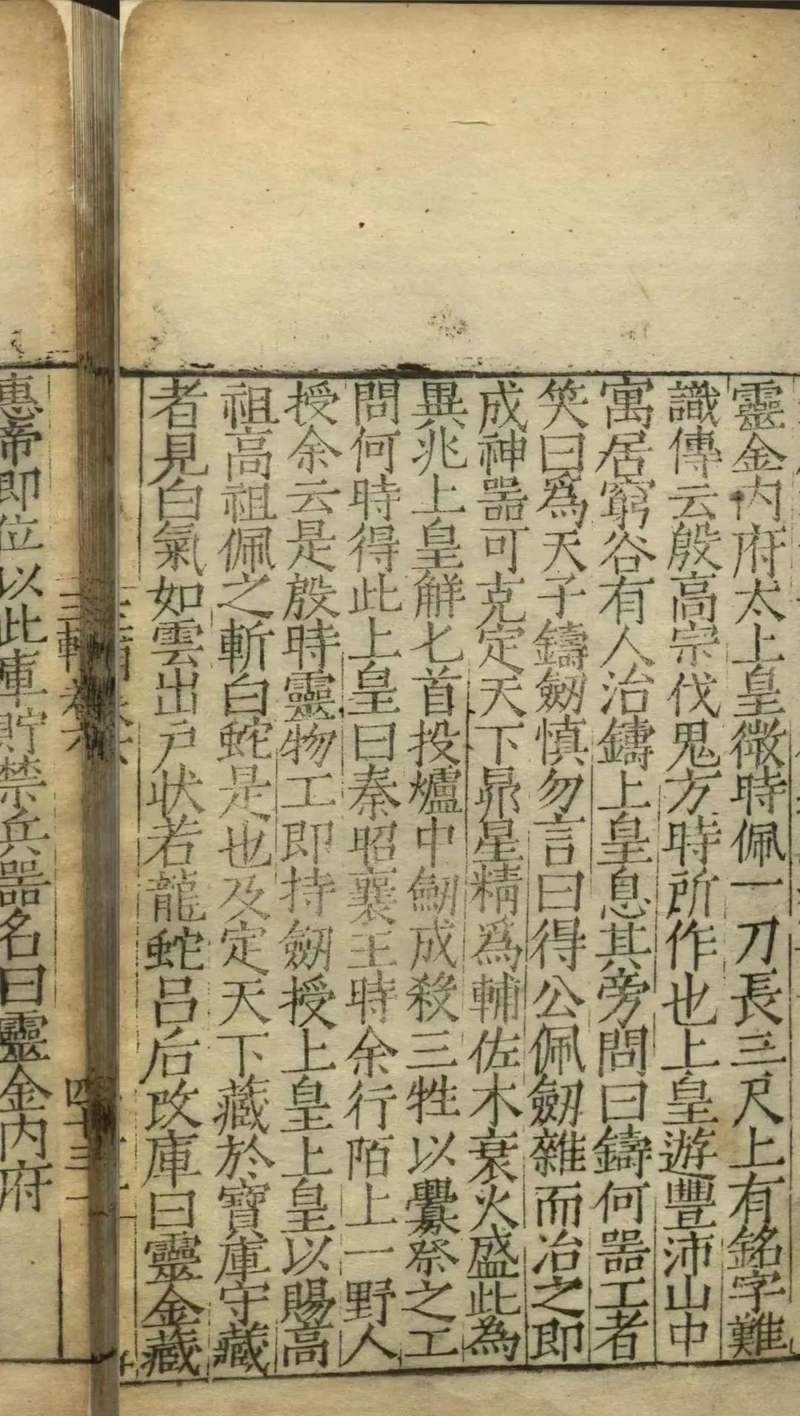 靈金內府太上皇微時佩一刀長三尺上有銘字難
識傳云殷高宗伐鬼方時所作也上皇遊豐沛山中
寓居窮谷有人冶鑄上皇息其旁問曰鑄何器工者
笑曰爲天子鑄劒慎勿言曰得公佩劒雜而冶之即
成神器可克定天下昴星精爲輔佐木衰火盛此為
異兆上皇解匕首投爐中劒成殺三牲以釁祭之工
問何時得此上皇曰秦昭襄王時余行陌上一野人
授余云是殷時靈物工即持劒授上皇上皇以賜高
祖高祖佩之斬白蛇是也及定天下藏於寶庫守藏
者見白氣如雲出戶狀若龍蛇吕后改庫曰靈金藏
惠帝即位以此庫貯禁兵器名曰靈金内府